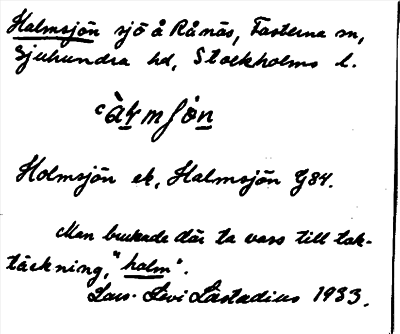 Halmsjön sjö å Rånäs, Fasterna sn,
Sjuhundra hd, Stockholms l.
Holmsjön ek, Halmsjön G84.
Man brukade där ta vass till tak-
täckning, "halm".
Lars-Levi Læstadius 1933.